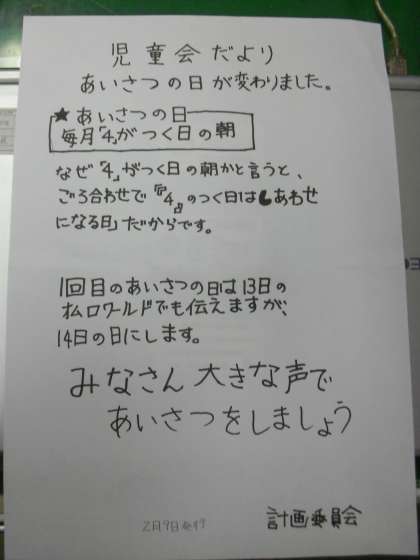 児童会だより
あいさつの日が変わりました。
★あいさつの日
毎月「4」がつく日の朝
なぜ「4」がつく日の朝かと言うと、
ごろ合わせで『「4」のつく日はしあわせ
になる日』だからです。
1回目のあいさつの日は13日の
オムロワールドでも伝えますが、
14日の日にします。
みなさん大きな声で
あいさつをしましょう
2月9日発行
計画委員会